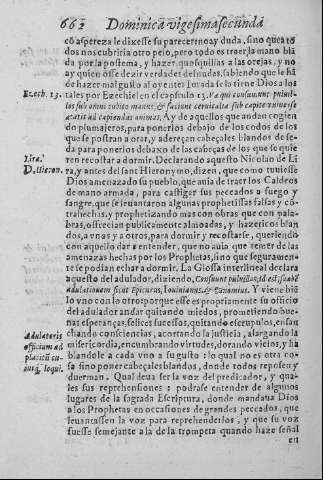 662 Dominica vigesimasecunda
cō aspereza le dixesse su parecer no ay duda, sino que a to
dos nos cubriria otro pelo, pero todo es traer la mano blā
da por la postema, y hazer quosquillas a las orejas, y no
ay quien osse dezir verdades desnudas, sabiendo que le hā
de hazer mal gusto al oyente: Iurada se la tiene Dios a los
Ezech. 13. tales por Ezechiel en el capitulo 13. Væ qui consuunt puluil-
los sub omni cubito manus, & faciunt ceruicalia sub capite vniuersæ
ætatis ad capiendas animas. Ay de aquellos que andan cogien
do plumajeros, para ponerlos debajo de los codos de los
que se postran a orar, y aderęçan cabeçales blandos de se-
da para ponerlos debaxo de las cabeças de los que se quie
Lira. ren recostar a dormir. Declarando aquesto Nicolao de Li
D. Hieron. ra, y antes del sant Hieronymo, dizen, que como tuuiesse
Dios amenazado su pueblo, que auia de traer los Caldeos
de mano armada, para castigar sus peccados a fuego y
sangre, que se leuantaron algunas prophetissas falsas y cō-
trahechas, y prophetizando mas con obras que con pala-
bras, offrecian publicamente almoadas, y hazericos blan
dos, a vnos y a otros, para dormir y recostarse, queriendo
con aquello dar a entender, que no auia que temer de las
amenazas hechas por los Prophetas, sino que seguramen-
te se podian echar a dormir. La Glossa interlineal declara
aquesto del adulador, diziendo, Consuunt puluillos, id est, suauē
adulationem sicut Epicurus, Iouinianus, & Eunomius. Y viene biē
lo vno con lo otro: porque esse es propriamente su officio
del adulador andar quitando miedos, prometiendo bue-
nas esperanças, felices sucessos, quitando escrupulos, ensan
Adulatoris chando consciencias, acortando la justicia, alargando la
officium ad misericordia, encumbrando virtudes, dorando vicios, y ha
placitū cu- blandole a cada vno a su gusto: lo qual no es otra co-
iusq; loqui. sa sino poner cabeçales blandos, donde todos reposen y
duerman. Qual deua ser la voz del predicador, y qua-
les sus reprehensiones: podrase entender de algunos
lugares de la sagrada Escriptura, donde mandaua Dios
a los Prophetas en occasiones de grandes peccados, que
leuantassen la voz para reprehenderlos, y que su voz
fuesse semejante a la de la trompeta quando haze señal
en